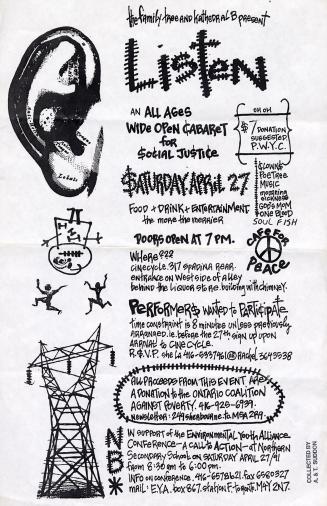 the family tree and kathedral B present
Listen
AN ALL AGES
WIDE OPEN CABARET
for
SOCIAL JUSTICE
OH OH
$7 DONATION
SUGGESTED
P.W.Y.C.
SATURDAY APRIL 27
CLOWNS
POETREE
MUSIC
MORNING
SICKNESS
GODS MOM
ONE BLOOD
SOUL FISH
FOOD + DRINK + ENTERTAINMENT
the more the merrier
DOORS OPEN AT 7 PM.
CAFE FOR
PEACE
WHERE???
CINECYCLE. 317 SPADINA REAR.
entrance on West side of alley
behind the liquor store. building with chimney.
PERFORMERS WANTED to PARTICIPATE
Time constraint is 8 minutes unless previously
ARRANGED. ie. before the 27th sign up upon
ARRIVAL to CINECYCLE.
R.S.V.P. she la 416-5337961 OR Rachel 3643538
ALL PROCEEDS FROM THIS EVENT ARE
A DONATION to the ONTARIO COALITION
AGAINST POVERTY. 416-925-6939.
newsletter: 249 sherbourne to M5A 2R9.
NB*
IN SUPPORT of the ENVIRONMENTAL Youth ALLIANCE
CONFERENCE - A CALL to ACTION - at Northern
Secondary School on SATURDAY APRIL 27/91
from 8:30 am to 6:00 pm.
INFO on conference. 416-6578621. fax 6580327
mail: E.Y.A. box 867. station F. toronto. M4Y 2N7.
COLLECTED BY
A. & T. SUDDON